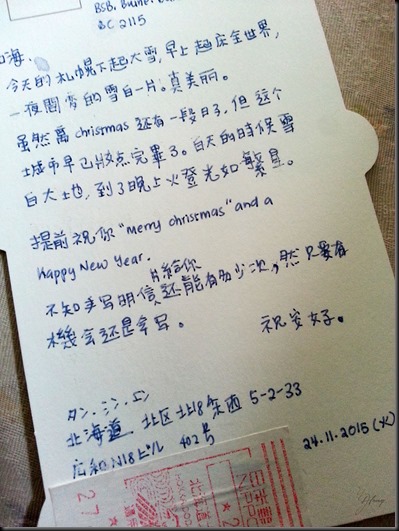 BSB, Bu
BC 2115
海,
今天的札幌下起大雪,早上起床全世界,
一夜間旁的雪白一片。真美丽。
虽然离 christmas 还有一段日子,但这个
城市早已粧点完畢了。白天的時侯雪
白大地,到了晚上火登光如繁星。
提前祝你 "merry christmas" and a
Happy New Year.
不知手写明信片給你还能有多少次,然只要有
機会还是会写。 祝安好。
タン・シン・エン
北海道 北区北18条西 5-2-33
広和N18ビル 402号
24.11.2015 (火)
日本郵便
北海道
27